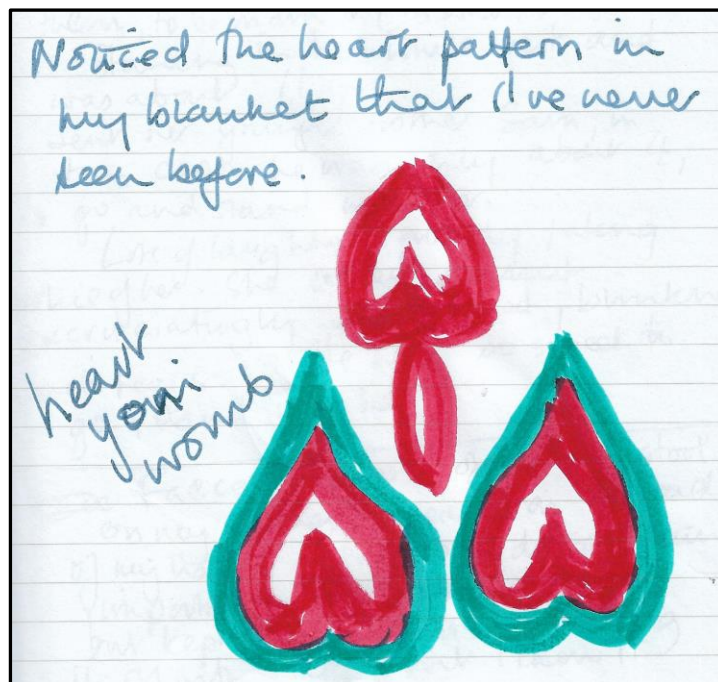 Noticed the heart pattern in
my blanket that I've never
seen before.
heart
yoni
womb